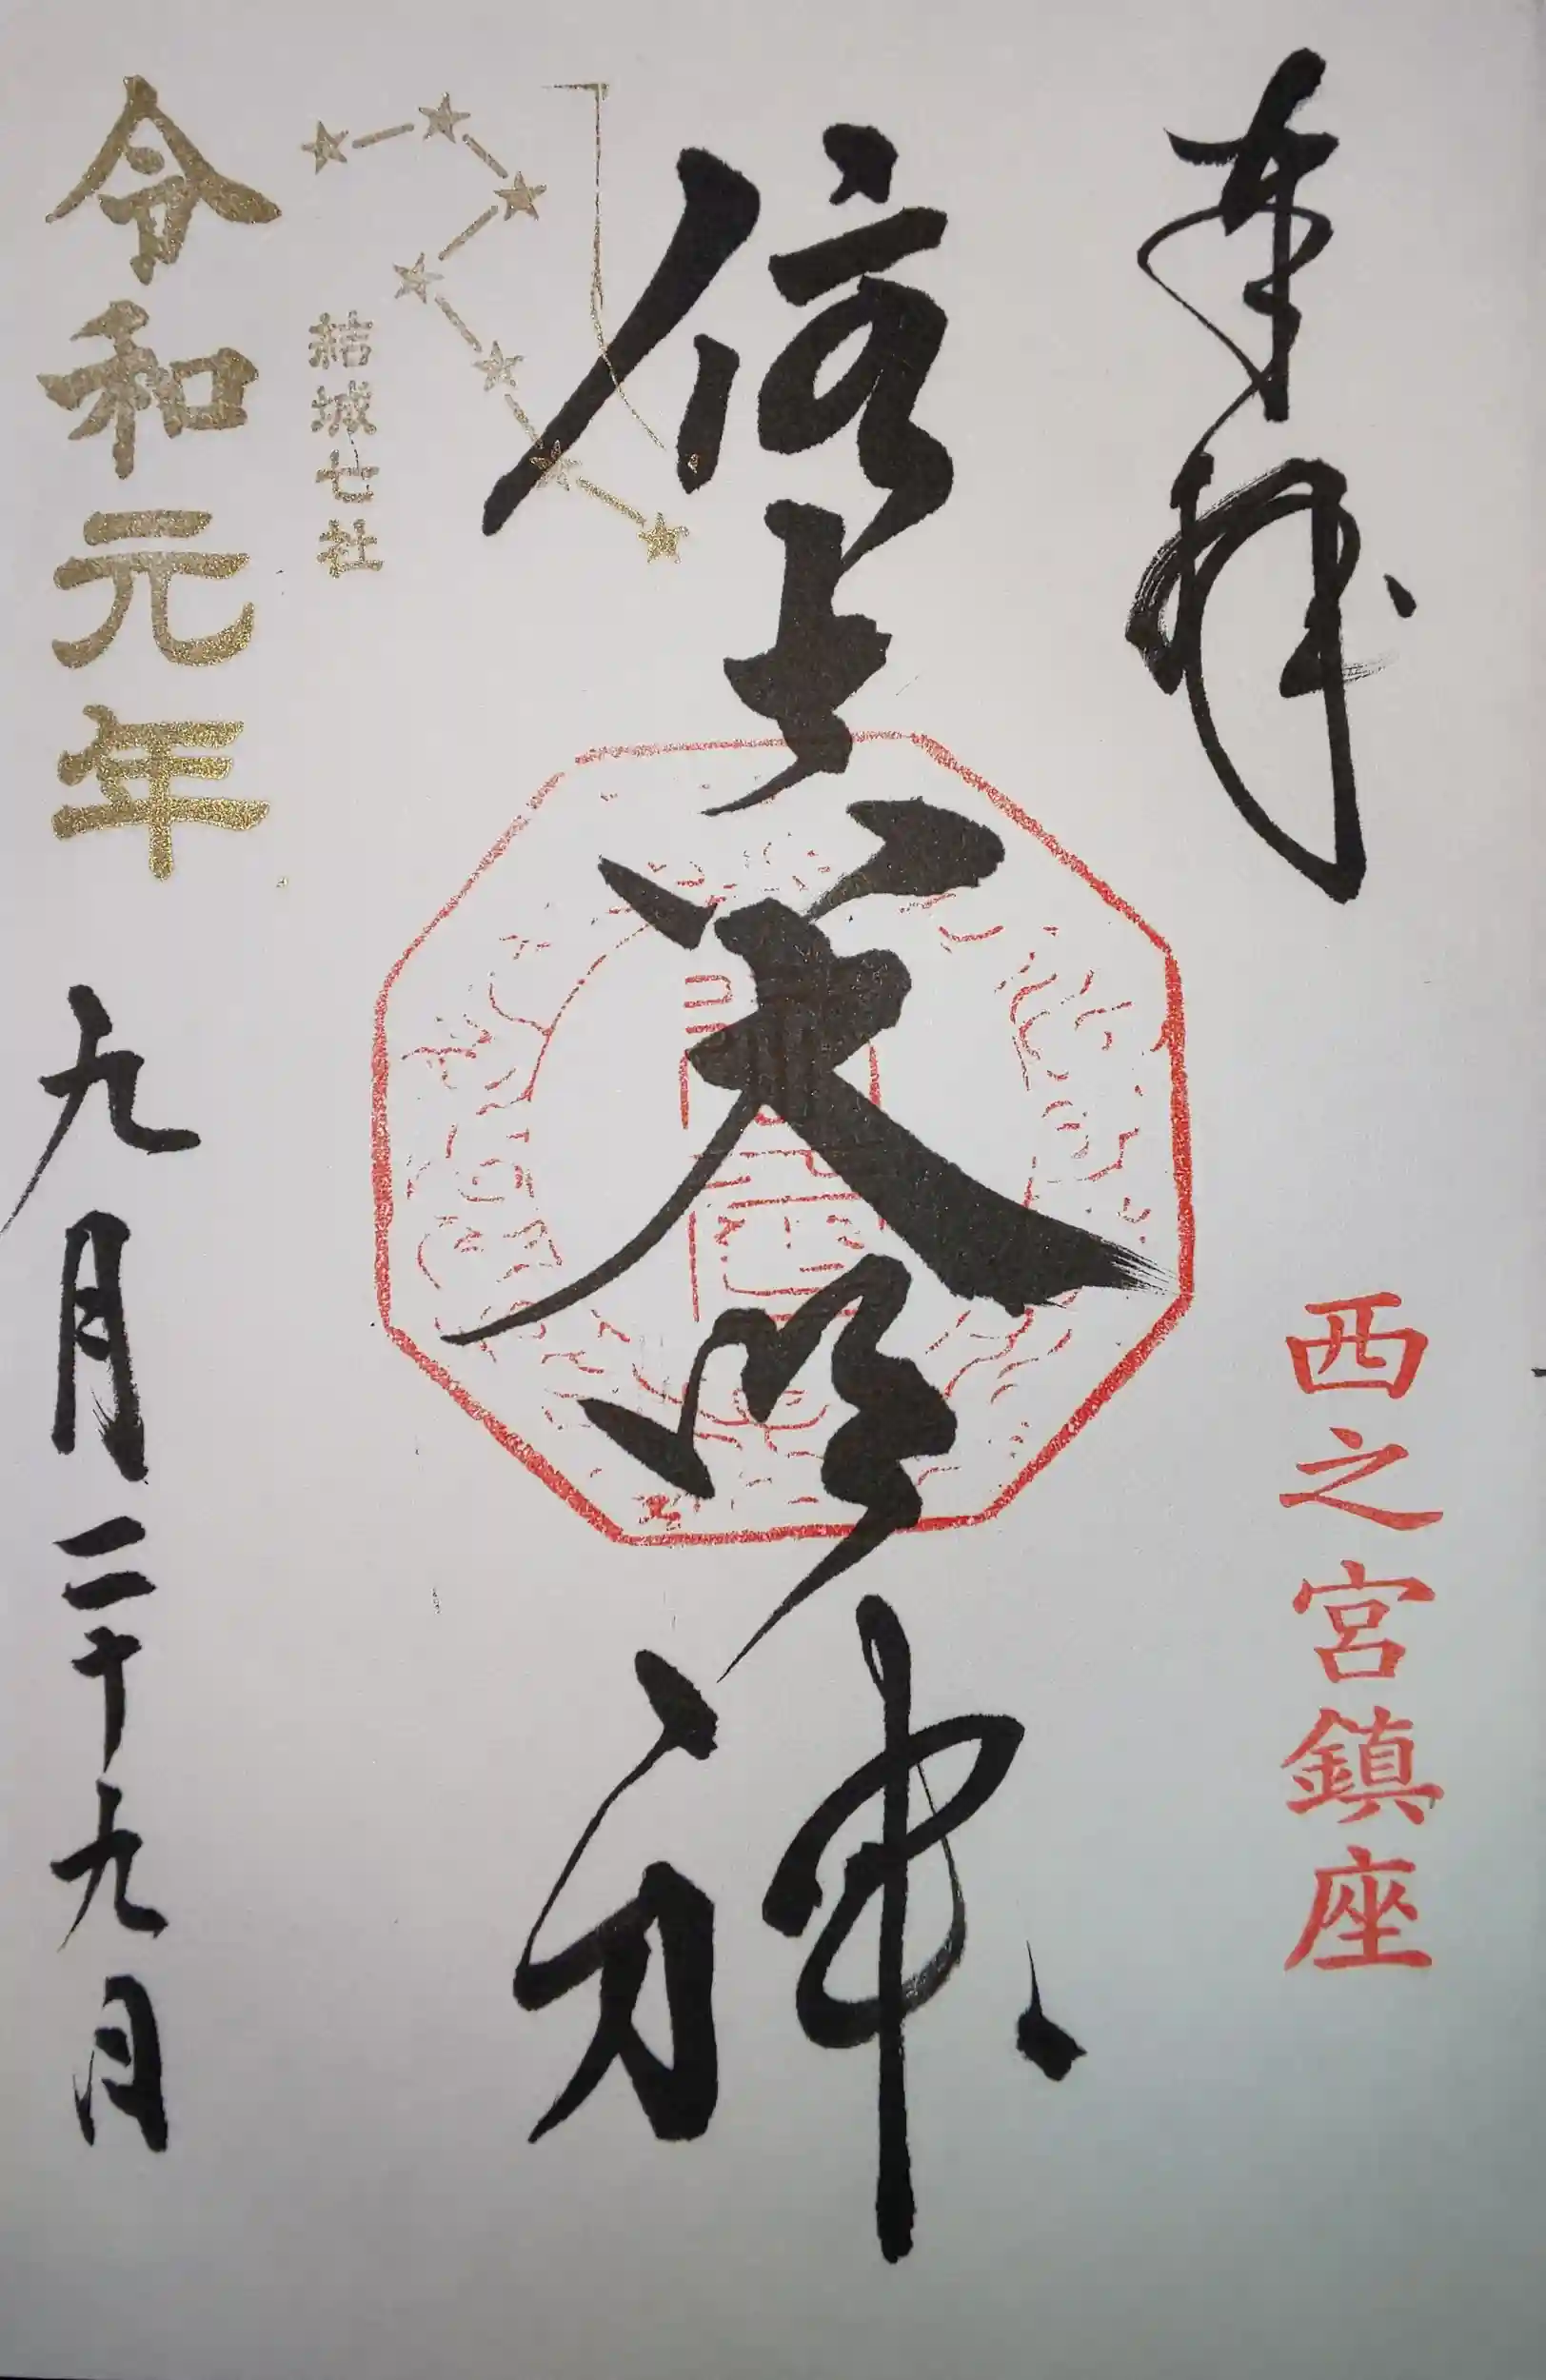 奉拝
西之宮鎮座
住吉大明神
結城七社
令和元年 九月二十九日